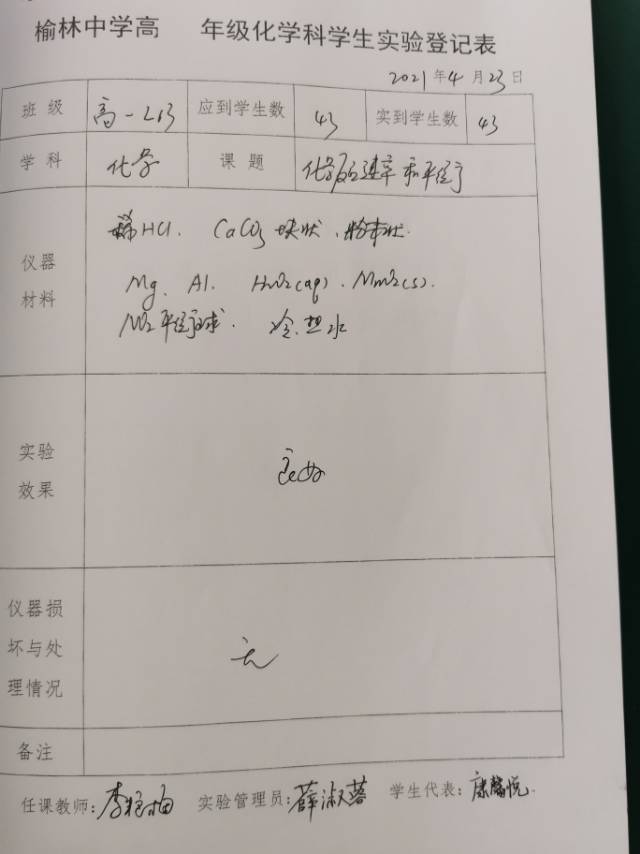 榆林中学高 年级化学科学生实验登记表
2021年4月23日
班级 高一213 应到学生数 43 实到学生数 43
学科 化学 课题 化学反应速率和平衡
仪器材料 稀HCl、CaCO3 块状、粉末状.
Mg、Al. H2O2(aq)、MnO2(s).
NO2平衡球. 冷.热水
实验效果 良好
仪器损坏与处理情况 无
备注
任课教师:李 梅 实验管理员:薛淑蓉 学生代表:康馨悦.